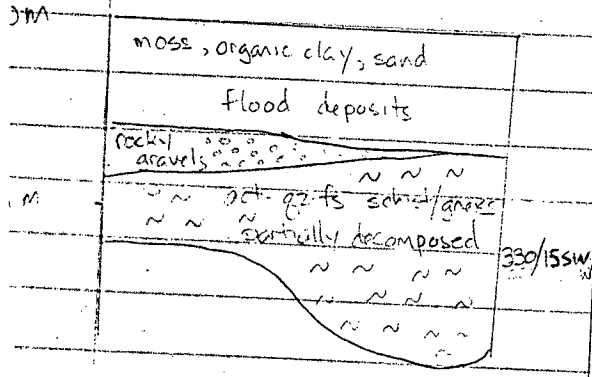 moss, organic clay, sand
flood deposits
rocky
gravels
qz-fs schist/
partially decomposed
330/15SW
M